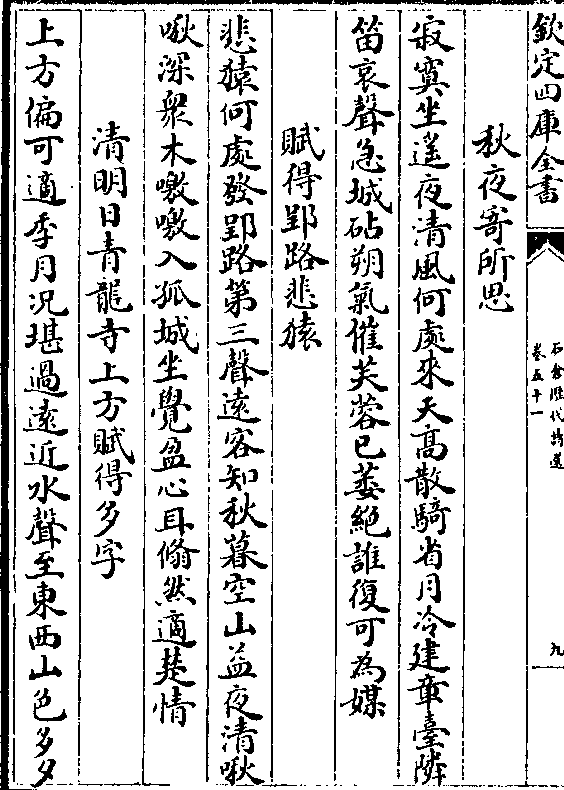 欽定四庫全書
石倉歷代詩選
卷五十一
九
秋夜寄所思
寂寞坐遙夜清風何處來天高散騎省月冷建章臺隣
笛哀聲急城砧朔氣催芙蓉已萎絕誰復可為媒
賦得郢路悲猿
悲猿何處發郢路第三聲遠客知秋暮空山益夜清啾
啾深衆木噭噭入孤城坐覺盈心耳翛然適楚情
清明日青龍寺上方賦得多字
上方偏可適季月況堪過遠近水聲至東西山色多夕